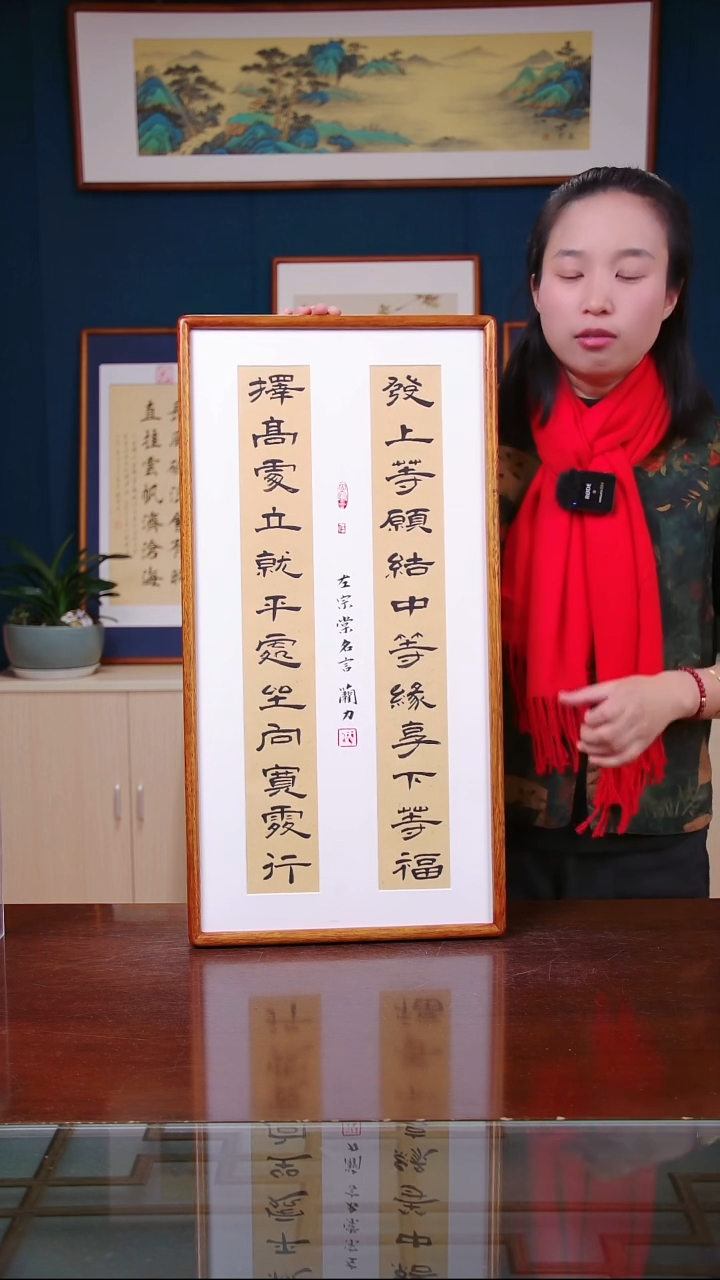 發上等願結中等緣享下等福
擇髙處立就平處坐向寬處行
左宗棠名言 蘭力
直挂雲帆濟滄海
RODE